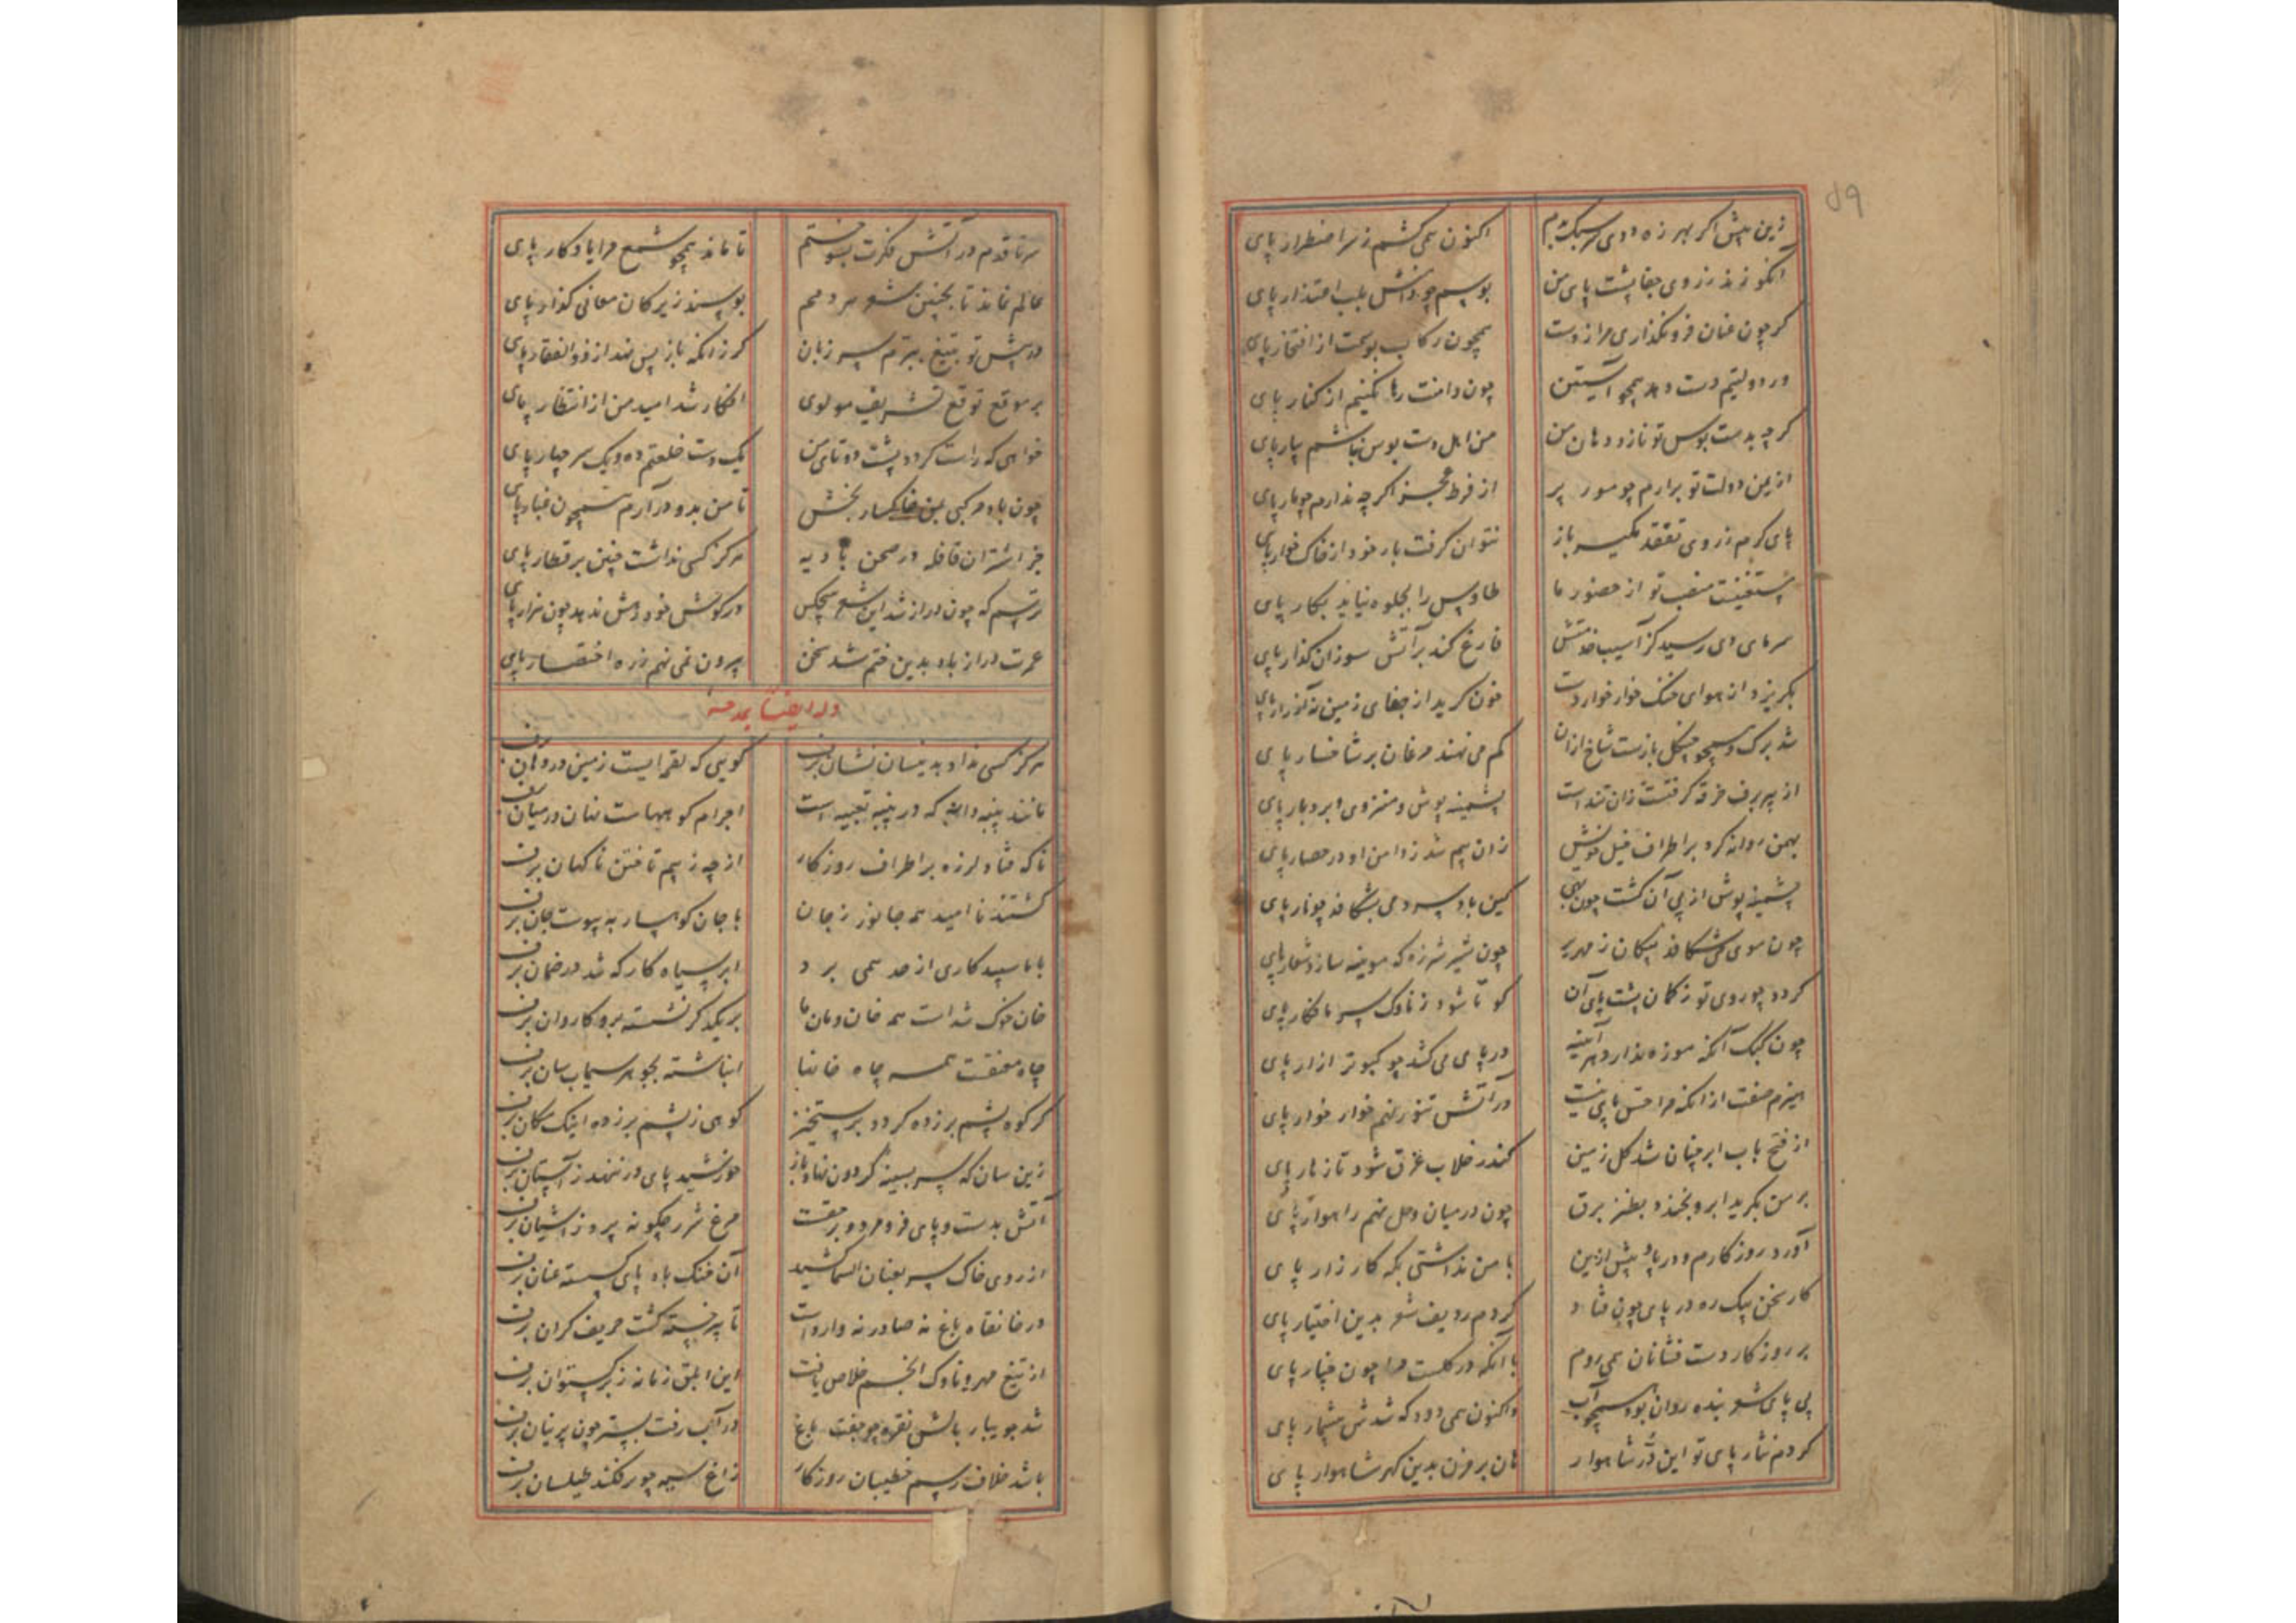 ۵۹
زین پیش اگر بهر زه دوی سر سبک بدم اکنون همی کشم ز سر اضطرار پای
آنکو زند ز روی جفا پشت پای من بوسم چو دامنش بلب اعتذار پای
گر چون عنان فرو نگذاری مرا ز دست همچون رکاب بوسمت از افتخار پای
ور دولتیم دست دهد همچو آستین چون دامنت رها نکنم از کنار پای
گر چه بدست بوس تو نازد دهان من من اهل دست بوس نباشم بیار پای
از یمن دولت تو برارم چو مور پر از فرط عجز اگر چه ندارم چو مار پای
پای کرم ز روی تفقد مگیر باز نتوان گرفت بار خود از خاک خوار پای
مستغنیست منصب تو از حضور ما طاوس را بجلوه نیاید بکار پای
سرمای دی رسید کز آسیب فارغ کند بر آتش سوزان گذار پای
بگریزد از هوای خنک خوار خوار دست خون گرید از جفای زمین پای
شد برگ همچو چنگل بازست شاخ از ان کم می نهند مرغان بر شاخسار پای
از پیر برف خرقه گرفتست زان شداست پشمینه پوش و منزوی ابر و بار پای
بهمن روانه کرد بر اطراف خیل خویش زان بیم شد ز دامن او در حصار پای
پشمینه پوش از پی آن گشت چون بهی کین باد سرد می بشکافد چو نار پای
چون موی می شکافد پیکان زمهریر چون شیر شرزه که موینه سازد شعار پای
گردد چو روی توز کمان پشت پای آن کو تا شود ز ناوک سرما فکار پای
چون کبک آنکه موزه ندارد هر آینه در پای می کشد چو کبوتر ازار پای
هیزم صفت از آنکه مرا حس پای نیست در آتش تنور نهم خوار خوار پای
از فتح باب ابر چنان شد گل زمین کندر خلاب غرق شود تا زهار پای
بر من بگرید ابر و بخندد بطنز برق چون در میان وحل نهم راهوار پای
آورد روزگارم در پا و پیش ازین با من نداشتی بگه کارزار پای
کار سخن بیک ره در پای چون فتاد کردم ردیف شعر بدین اختیار پای
بر روزگار دست فشانان همی روم با آنکه در گلست مرا چون چنار پای
بی پای شعر بنده روان بود همچو آب واکنون همی دود که شدش بیشمار پای
کردم نثار پای تو این در شاهوار هان بر مزن بدین گهر شاهوار پای
سر تا قدم در آتش فکرت بسوختم تا ماند همچو شمع مرا یادگار پای
عالم نماند تا بچنین شعر مردمم بوسند زیرکان معانی گذار پای
در پیش تو بتیغ ببرم سر زبان گر زانکه باز پس نهد از ذوالفقار پای
بر موقع توقع تشریف مولوی افکار شد امید من از انتظار پای
خواهی که راست گردد پشت دوتای من یک دست خلعتم ده و یک سر چهار پای
چون باد مرکبی بمن خاکسار بخش تا من بدو در آرم همچون غبار پای
جز اشتران قافله در صحن بادیه هرگز کسی نداشت چنین بر قطار پای
ترسم که چون دراز شد این شعر هیچکس در گوش خود رهش ندهد چون هزار پای
عمرت دراز باد بدین ختم شد سخن بیرون نمی نهم ز ره اختصار پای
وله ایضا یمدحه
هرگز کسی نداد بدینسان نشان برف گویی که لقمه ایست زمین در دهان برف
مانند پنبه دانه که در پنبه تعبیه است اجرام کوههاست نهان در میان برف
ناگه فتاد لرزه بر اطراف روزگار از چه ز بیم تاختن ناگهان برف
گشتند ناامید همه جانور ز جان با جان کوهسار به پیوست جان برف
با ما سپید کاری از حد همی برد ابر سیاه کار که شد در ضمان برف
خان خنک شداست همه خان و مان ما بر یکدگر نشسته برو کاروان برف
چاه مقنعست همه چاه خانها انباشته بجوهر سیماب سان برف
گر کوه پشم برزده گردد برستخیز کوهی ز پشم برزده اینک مکان برف
زین سان که سر بسینه گردون نهاد باز خورشید پای در ننهد ز آستان برف
آتش بدست و پای فرو مرد و بر حقست مرغ شرر چگونه پرد ز آشیان برف
از روی خاک سر بعنان السما کشید آن خنک باد پای گسسته عنان برف
در خانقاه باغ نه صادر نه واردست تا پیر پنبه گشت حریف گران برف
از تیغ مهر و ناوک انجم خلاص یافت این ابلق زمانه ز برگستوان برف
شد جویبار بالش نقره چو جفت باغ در آب رفت بستر چون پرنیان برف
باشد خلاف رسم خطیبان روزگار زاغ سیه چو برفکند طیلسان برف